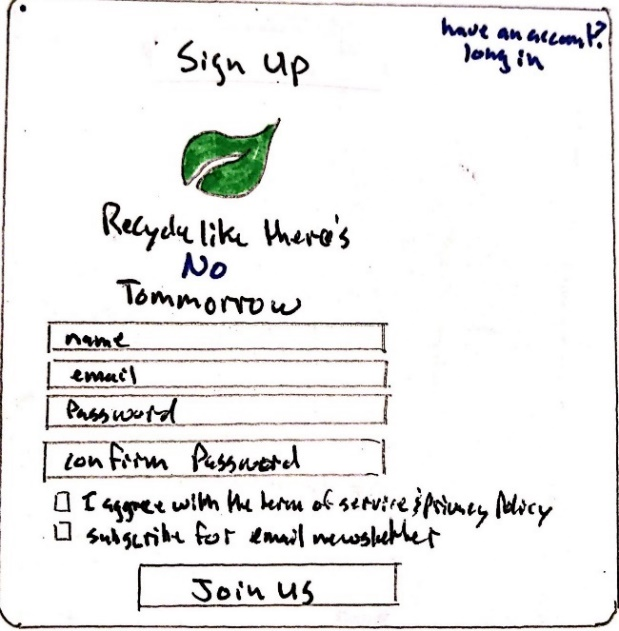 have an account?
long in
Sign Up
Recycle like there's
No
Tommorrow
name
email
Password
confirm Password
I aggree with the term of service & privacy Policy
subscribe for email newsletter
Join us